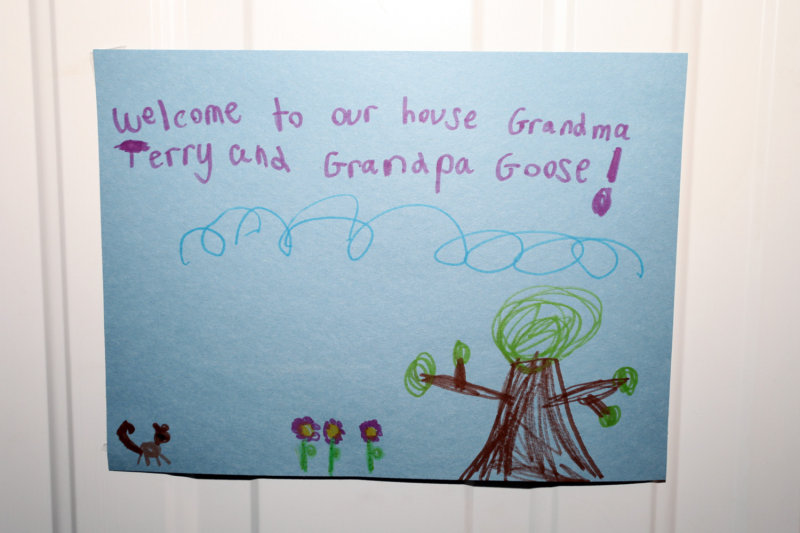 Welcome to our house Grandma
Terry and Grandpa Goose!